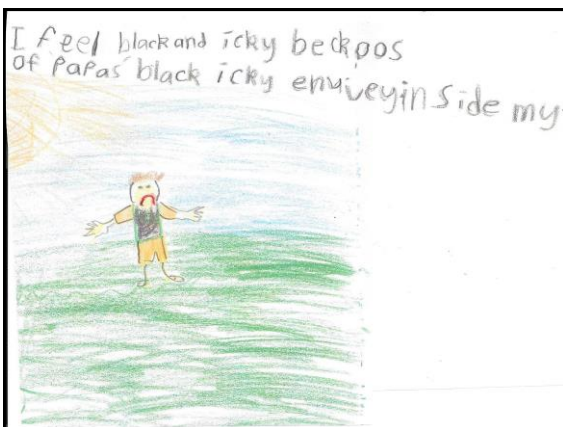 I feel black and icky beckpos
of Papas' black icky enviveyin Side my